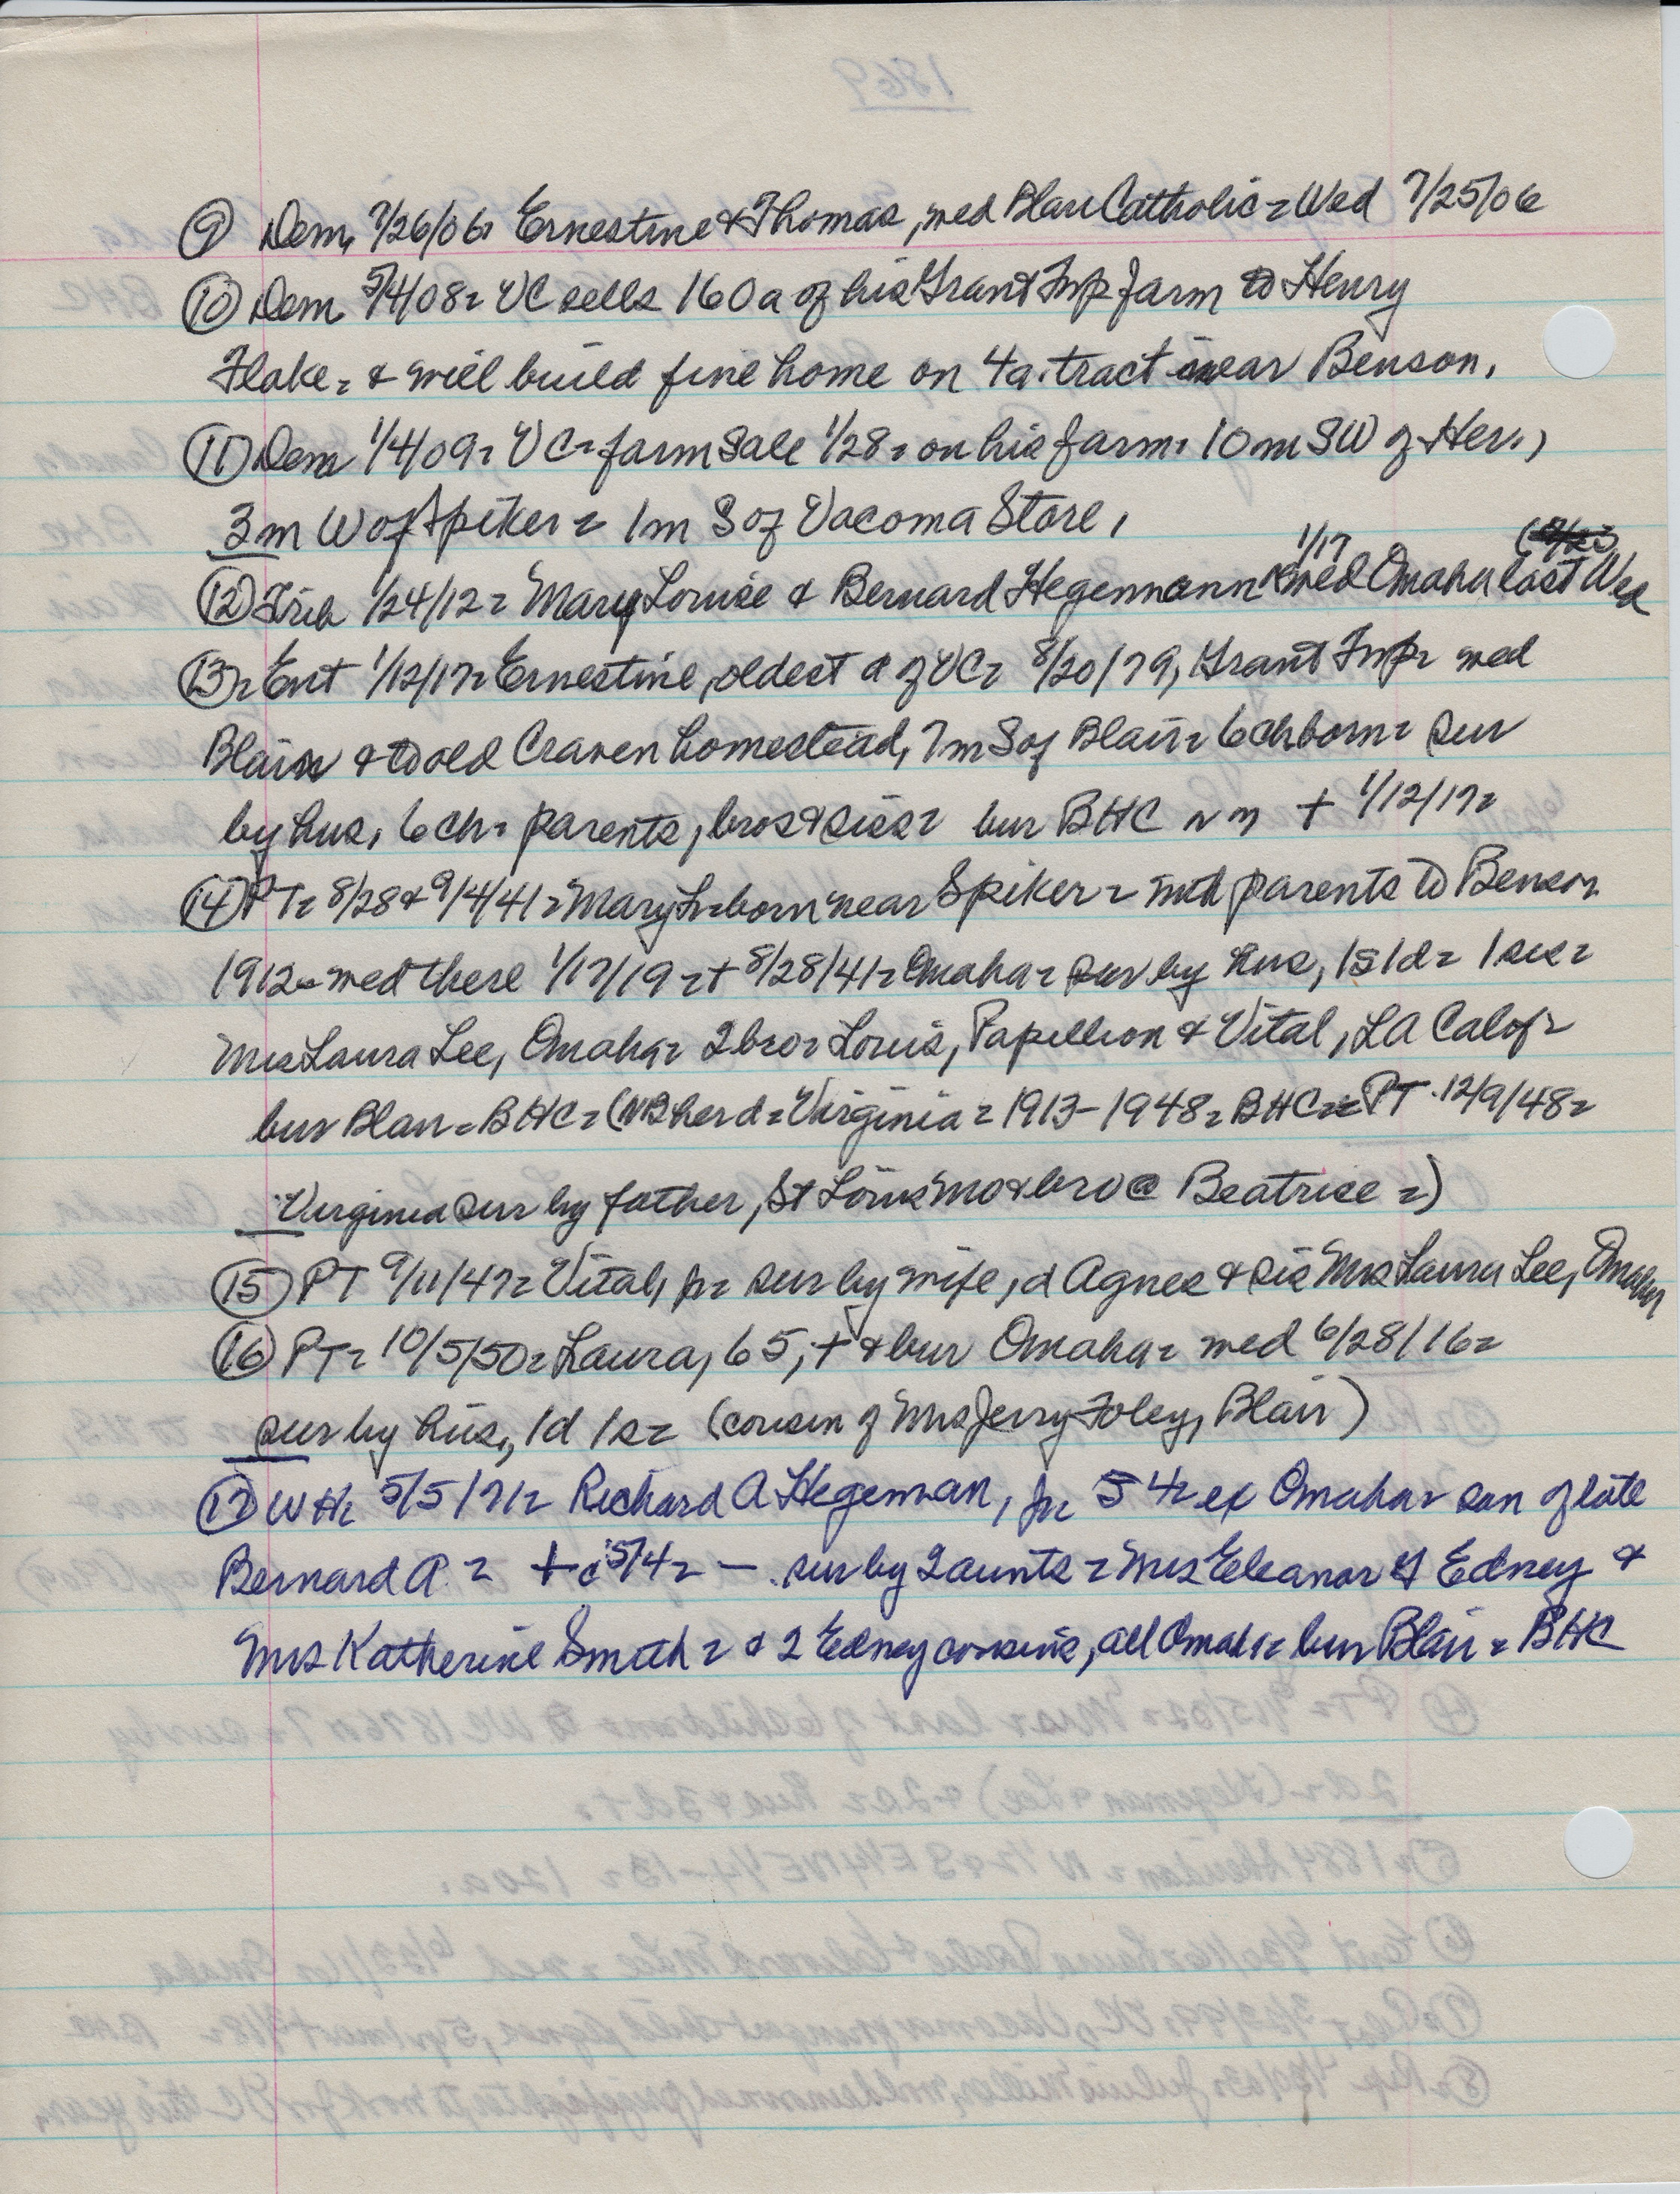 ⑨ Dem, 7/26/06, Ernestine & Thomas, med Blair Catholic = Wed 7/25/06
⑩ Dem 5/4/08 = VC sells 160a of his Grant Twp farm to Henry
Flake = & will build fine home on 4a. tract near Benson.
⑪ Dem 1/4/09 = VC = farm sale 1/28 = on his farm, 10 m SW of Her.,
3 m W of Spiker = 1 m S of Vacoma Store,
1/17
⑫ Trib 1/24/12 = Mary Louise & Bernard Hegemann med Omaha last Wed
⑬ = Ent 1/12/17 = Ernestine, oldest d of VC = 8/20/79, Grant Twp = med
Blair & to old Craven homestead, 7 m S of Blair = 6 ch born = sur
by hus, 6 ch = parents, bros & siss = bur BHC + 1/12/17 =
⑭ PT = 8/28 & 9/4/41 = Mary L = born near Spiker = with parents to Benson
1912 = med there 1/17/19 = + 8/28/41 = Omaha = sur by hus, 1s 1d = 1 sis =
Mrs Laura Lee, Omaha = 2 bro = Louis, Papillion & Vital, LA Calif =
bur Blair = BHC = (NB her d = Virginia = 1913-1948 = BHC = PT 12/9/48 =
Virginia sur by father, St Louis Mo & bro @ Beatrice =)
⑮ PT 9/11/47 = Vital, jr = sur by wife, d Agnes & sis Mrs Laura Lee, Omaha
⑯ PT = 10/5/50 = Laura, 65, + & bur Omaha = med 6/28/16 =
sur by hus, 1d 1s = (cousin of Mrs Jerry Foley, Blair)
⑰ WH = 5/5/71 = Richard A Hegeman, jr = 54 = ex Omaha = son of late
Bernard A. = + c 5/4 = — sur by 2 aunts = Mrs Eleanor Edney &
Mrs Katherine Smith = & 2 Edney cousins, all Omaha = bur Blair = BHC